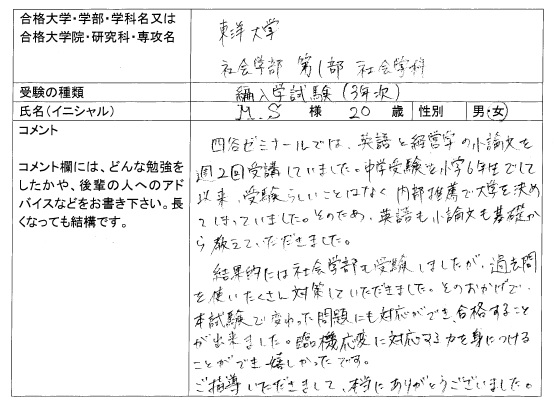 合格大学・学部・学科名又は
合格大学院・研究科・専攻名
東洋大学
社会学部 第1部 社会学科
受験の種類
編入学試験(3年次)
氏名(イニシャル)
M.S 様 20 歳 性別 男・女
コメント
コメント欄には、どんな勉強を
したかや、後輩の人へのアド
バイスなどをお書き下さい。長
くなっても結構です。
四谷ゼミナールでは、英語と経営学の小論文を
週2回受講していました。中学受験を小学6年生でして
以来、受験らしいことはなく内部推薦で大学を決め
てしまっていました。そのため、英語も小論文も基礎か
ら教えていただきました。
結果的には社会学部も受験しましたが、過去問
を使いたくさん対策していただきました。そのおかげで、
本試験で変わった問題にも対応ができ、合格すること
が出来ました。臨機応変に対応する力を身につける
ことができ嬉しかったです。
ご指導いただきまして、本当にありがとうございました。